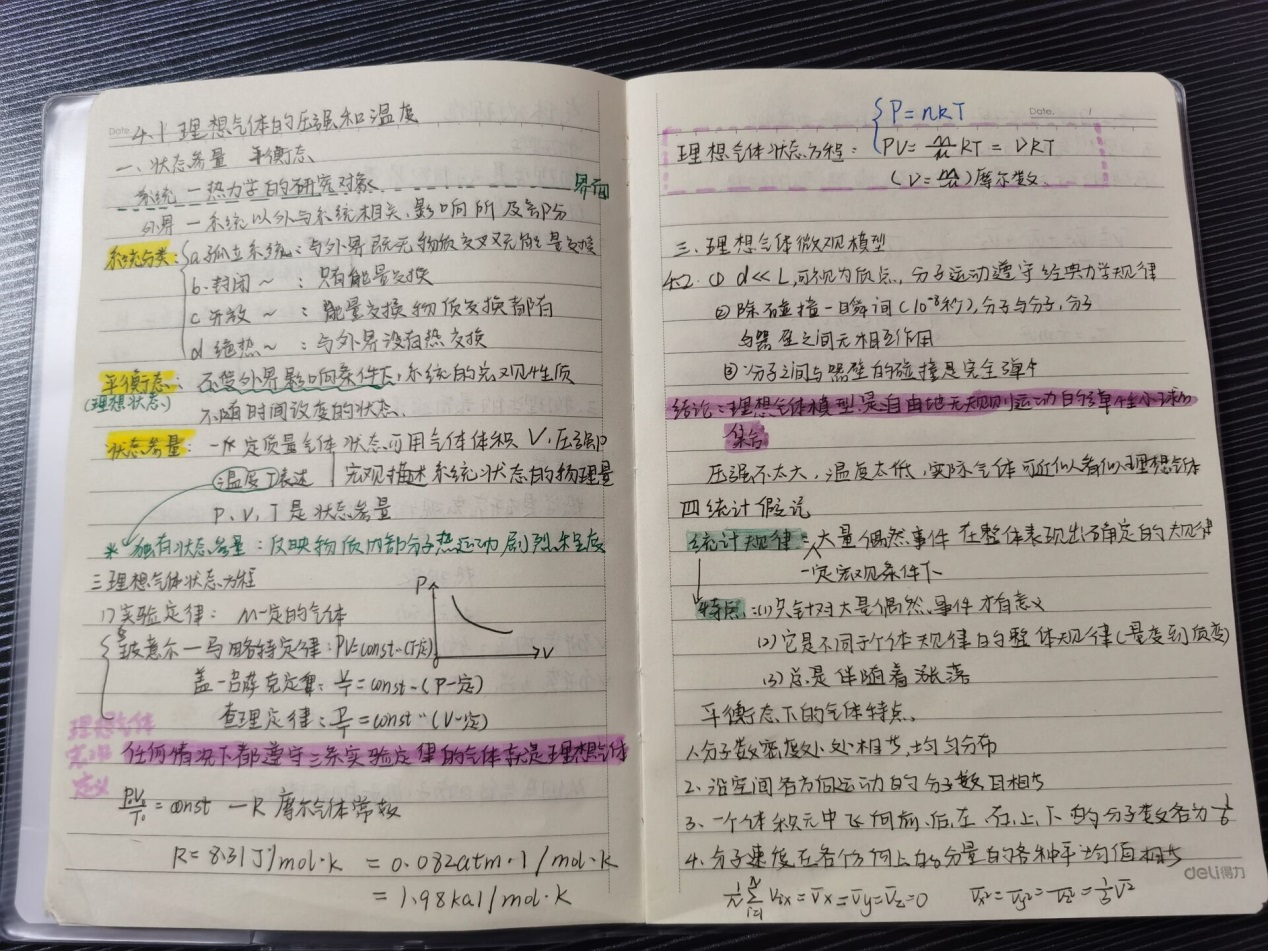 Date.
4.1 理想气体的压强和温度
一、状态参量 平衡态
系统 — 热力学的研究对象 界面
外界 — 系统以外与系统相关、影响所及部分
系统分类: a.孤立系统: 与外界既无物质交换又无能量交换
b.封闭 ~ : 只有能量交换
c 开放 ~ : 能量交换物质交换都有
d 绝热 ~ : 与外界没有热交换
平衡态: 不受外界影响条件下, 系统的宏观性质
(理想状态) 不随时间改变的状态.
状态参量: 一定质量气体状态可用气体体积 V, 压强P
温度T表述 宏观描述系统状态的物理量
P、V、T 是状态参量
* 独有状态参量: 反映物质内部分子热运动剧烈程度
三理想气体状态方程
1) 实验定律: M一定的气体
P V
玻意尔—马略特定律: PV=const (T一定)
盖—吕萨克定律: V/T = const (P一定)
查理定律: P/T = const (V一定)
理想气体
定义
任何情况下都遵守三条实验定律的气体就是理想气体
= const — R 摩尔气体常数
R = 8.31 J/mol·k = 0.082atm·l/mol·k
= 1.98kal/mol·k
P = nkT
Date. /
理想气体状态方程: PV = m/M RT = νRT
(ν = m/M) 摩尔数.
三. 理想气体微观模型
4.2. ① d≪L, 可视为质点, 分子运动遵守经典力学规律
② 除碰撞一瞬间 (10⁻⁸秒), 分子与分子, 分子
与器壁之间无相互作用
③ 分子之间与器壁的碰撞是完全弹
结论: 理想气体模型是自由地无规则运动的弹性小球
集合
压强不太大, 温度太低, 实际气体可近似看似理想气体
四 统计假说
统计规律: 大量偶然事件 在整体表现出确定的规律
一定宏观条件下
特点: (1) 只针对大量偶然事件才有意义
(2) 它是不同于个体规律的整体规律 (量变到质变)
(3) 总是伴随着涨落
平衡态下的气体特点.
1. 分子数密度处处相等, 均匀分布
2. 沿空间各方向运动的分子数目相等
3. 一个体积元中飞向前、后、左、右、上、下的分子数各为 1/6
4. 分子速度在各方向上的分量的各种平均值相等
1/N Σ(i=1→N) v_ix = v̄x = v̄y = v̄z = 0 v̄x² = v̄y² = v̄z² = 1/3 v̄²
deli得力